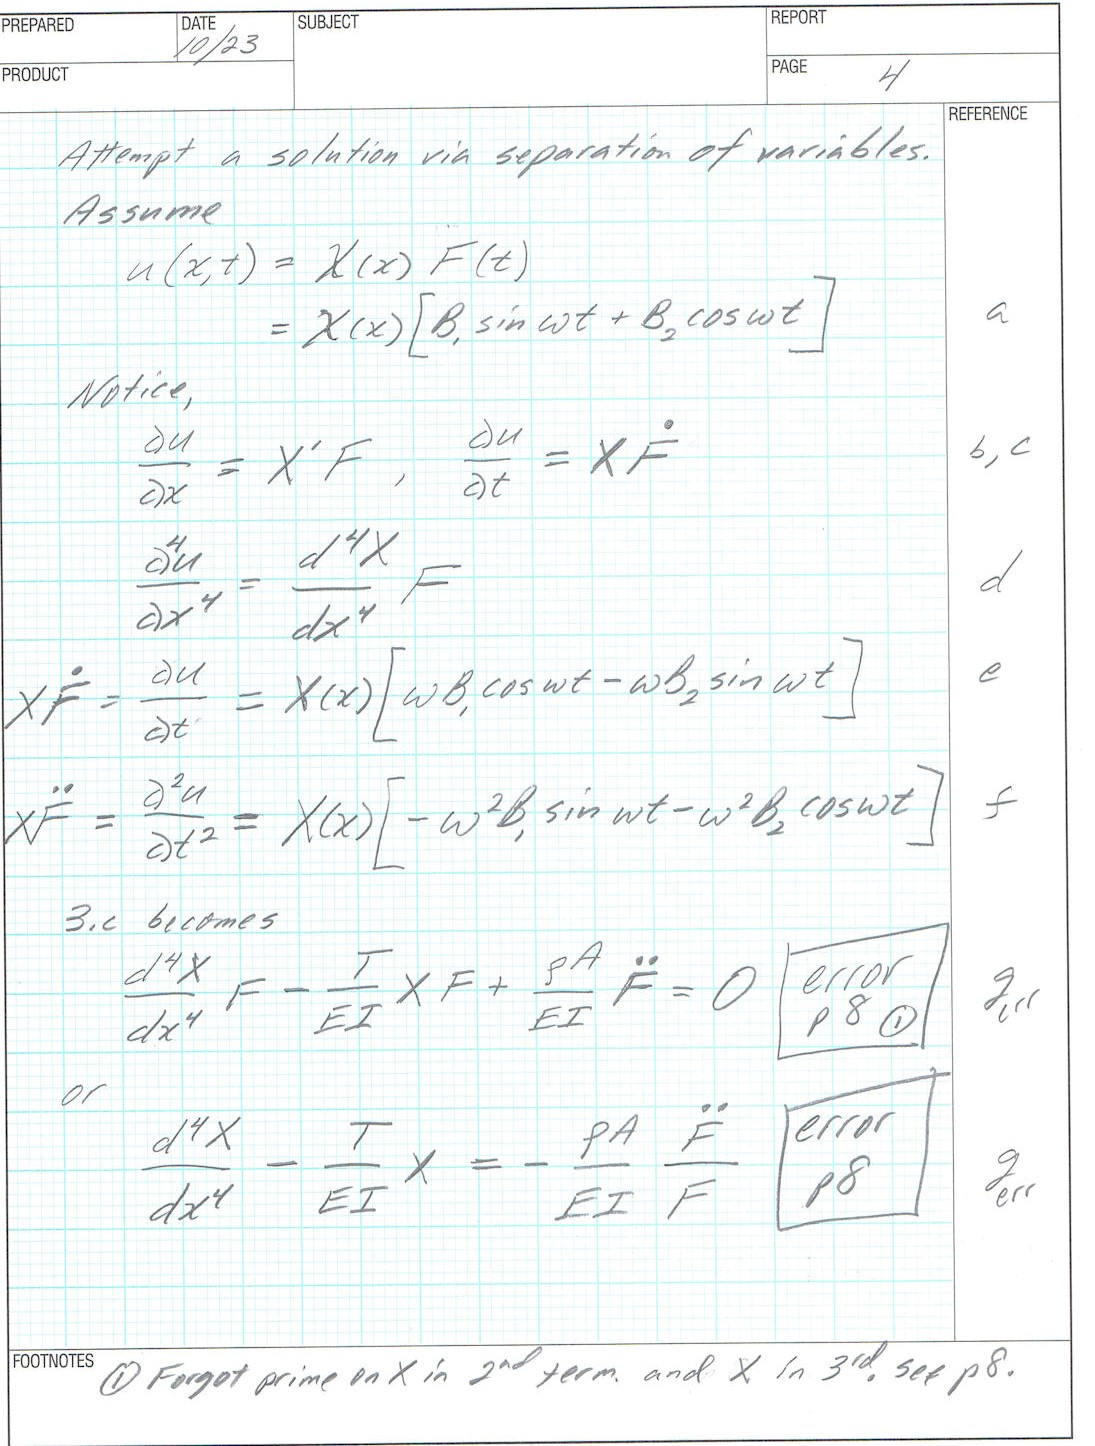 PREPARED DATE SUBJECT REPORT
10/23
PRODUCT PAGE 4
REFERENCE
Attempt a solution via separation of variables.
Assume
u(x,t) = X(x) F(t)
= X(x)[B₁ sin ωt + B₂ cos ωt] a
Notice,
∂u/∂x = X′F , ∂u/∂t = XḞ b, c
∂⁴u/∂x⁴ = d⁴X/dx⁴ F d
XḞ = ∂u/∂t = X(x)[ωB₁ cos ωt − ωB₂ sin ωt] e
XF̈ = ∂²u/∂t² = X(x)[−ω²B₁ sin ωt − ω²B₂ cos ωt] f
3.c becomes
d⁴X/dx⁴ F − T/EI X F + ρA/EI F̈ = 0 error p8 ① g,err
or
d⁴X/dx⁴ − T/EI X = − ρA/EI F̈/F error p8 g err
FOOTNOTES ① Forgot prime on X in 2nd term. and X in 3rd. see p8.